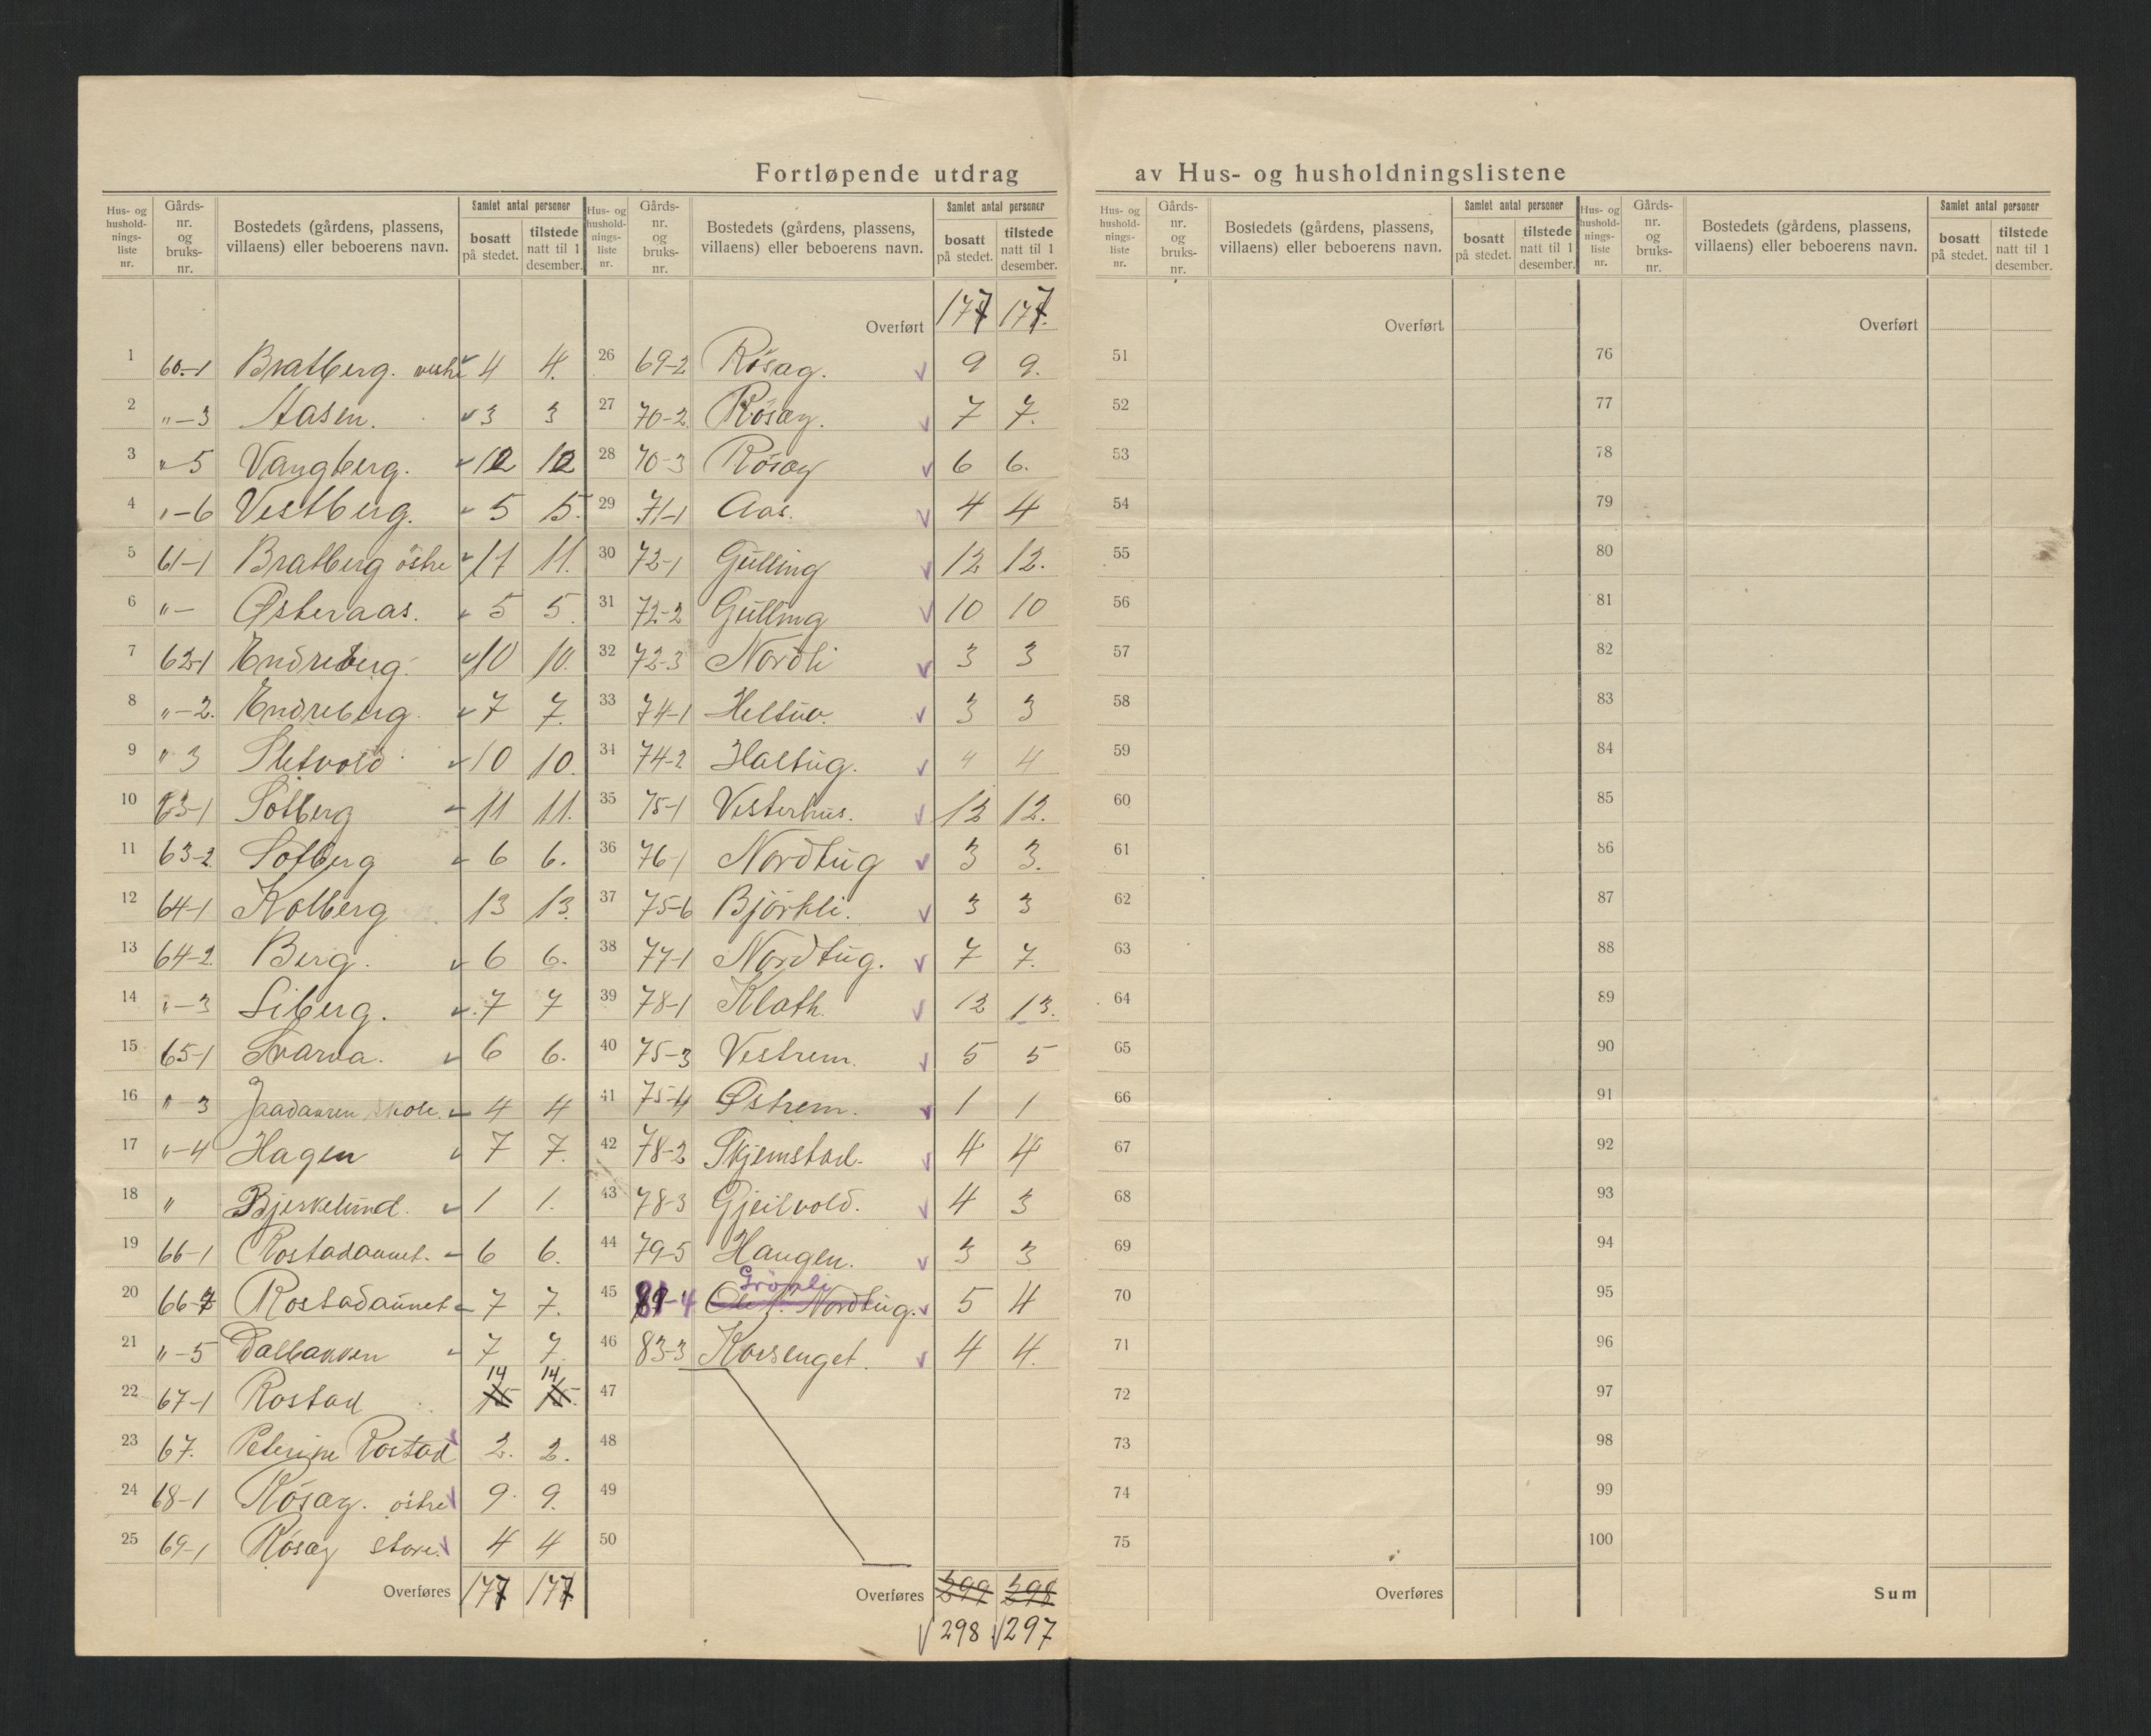 Fortløpende utdrag av Hus- og husholdningslistene
Hus- og hushold-nings-liste nr. Gårds-nr. og bruks-nr. Bostedets (gårdens, plassens, villaens) eller beboerens navn. Samlet antal personer bosatt på stedet. tilstede natt til 1 desember.
1 60-1 Bratberg. vestre 4 4.
2 "-3 Aasen. 3 3
3 "-5 Vangberg. 12 12
4 "-6 Vestberg. 5 5.
5 61-1 Bratberg östre 11 11.
6 "- Østeraas. 5 5.
7 62-1 Endreberg. 10 10.
8 "-2. Endreberg. 7 7.
9 " 3 Sletvold 10 10.
10 63-1 Solberg 11 11.
11 63-2 Solberg 6 6.
12 64-1 Kolberg 13 13.
13 64-2 Berg. 6 6.
14 "-3 Liberg. 7 7
15 65-1 Svarva. 6 6.
16 "-3 Jaadaaren skole. 4 4
17 "-4 Hagen 7 7.
18 " Bjerkelund. 1 1.
19 66-1 Rostadaunet. 6 6.
20 66- Rostadaunet 7 7.
21 "-5 Dalbakken 7 7.
22 67-1 Rostad 14 14
23 67. Rostad 2. 2.
24 68-1 Rösæg. östre 9. 9.
25 69-1 Rösæg store. 4 4
Overføres 177 177
Hus- og hushold-nings-liste nr. Gårds-nr. og bruks-nr. Bostedets (gårdens, plassens, villaens) eller beboerens navn. Samlet antal personer bosatt på stedet. tilstede natt til 1 desember.
Overført 177 177.
26 69-2 Rösag. 9 9.
27 70-2 Rösæg. 7 7.
28 70-3 Rösæg 6 6.
29 71-1 Aas. 4 4
30 72-1 Gulling 12 12.
31 72-2 Gulling 10 10
32 72-3 Nordli 3 3
33 74-1 3 3
34 74-2 Haltug. 4 4
35 75-1 Vesterhus. 12 12.
36 76-1 Nordtug 3 3.
37 75-6 Björkli. 3 3
38 77-1 Nordtug. 7 7.
39 78-1 Kloth. 13 13.
40 75-3 Vestrem. 5 5
41 75-4 Østrem. 1 1
42 78-2 Skjemstad. 4 4
43 78-3 Gjeilvold. 4 3
44 79-5 Haugen. 3 3
Grönli
45 81-4 Ole J. Nordtug. 5 4
46 83-3 Korsenget. 4 4.
47
48
49
50
Overføres 299 298
298 297
Hus- og hushold-nings-liste nr. Gårds-nr. og bruks-nr. Bostedets (gårdens, plassens, villaens) eller beboerens navn. Samlet antal personer bosatt på stedet. tilstede natt til 1 desember.
Overført
51
52
53
54
55
56
57
58
59
60
61
62
63
64
65
66
67
68
69
70
71
72
73
74
75
Overføres
Hus- og hushold-nings-liste nr. Gårds-nr. og bruks-nr. Bostedets (gårdens, plassens, villaens) eller beboerens navn. Samlet antal personer bosatt på stedet. tilstede natt til 1 desember.
Overført
76
77
78
79
80
81
82
83
84
85
86
87
88
89
90
91
92
93
94
95
96
97
98
99
100
Sum